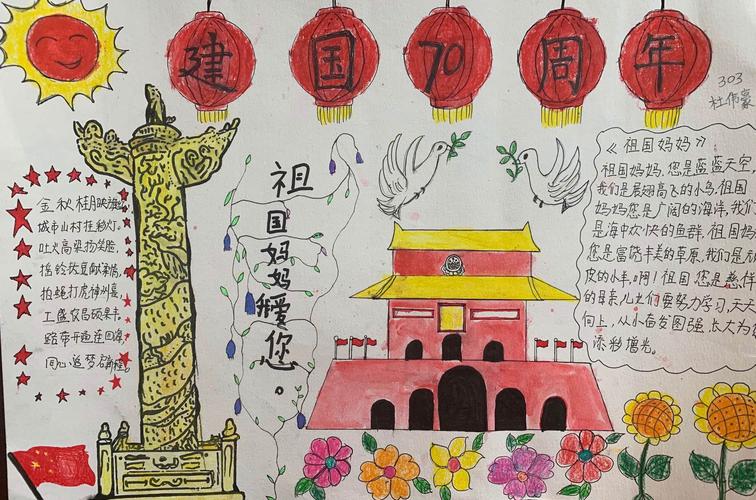 建国70周年
303
杜伟豪
祖国妈妈我爱您。
金秋桂月映
城市山村挂彩灯。
吐火高架扬笑脸,
献深情,
拍蝇打虎神州晏,
工盛农昌硕果丰。
路带开通连四
同心追梦启新程。
《祖国妈妈》
祖国妈妈,您是蓝蓝天空,
我们是展翅高飞的小鸟,祖国
妈妈您是广阔的海洋,我们
是海中欢快的鱼群,祖国妈
您是富饶丰美的草原,我们是
皮的小羊,啊!祖国您是慈祥
的母亲儿女们要努力学习,天天
向上,从小奋发图强,长大为
添彩增光。